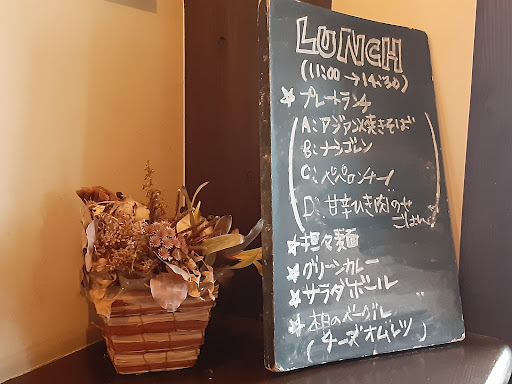 LUNCH
(11:00→14:30)
☆プレートランチ
A:アジアン焼きそば
B:ナシゴレン
C:ペペロンチーノ
D:甘辛ひき肉のせ
ごはん
☆担々麺
☆グリーンカレー
☆サラダボール
☆本日のベーグル
(チーズオムレツ)